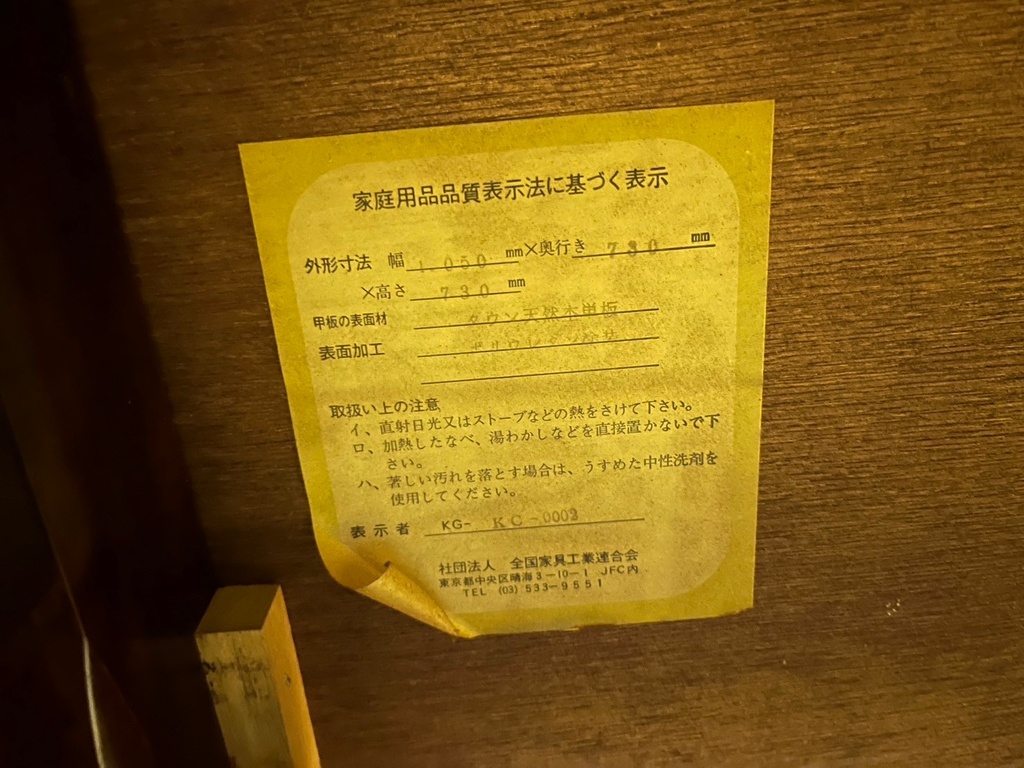 家庭用品品質表示法に基づく表示
外形寸法 幅 1,050 mm×奥行き 730 mm
×高さ 730 mm
甲板の表面材 タウン天然木単板
表面加工 ポリウレタン塗装
取扱い上の注意
イ、直射日光又はストーブなどの熱をさけて下さい。
ロ、加熱したなべ、湯わかしなどを直接置かないで下
さい。
ハ、著しい汚れを落とす場合は、うすめた中性洗剤を
使用してください。
表示者 KG- KC-0002
社団法人 全国家具工業連合会
東京都中央区晴海3-10-1 JFC内
TEL (03) 533-9551